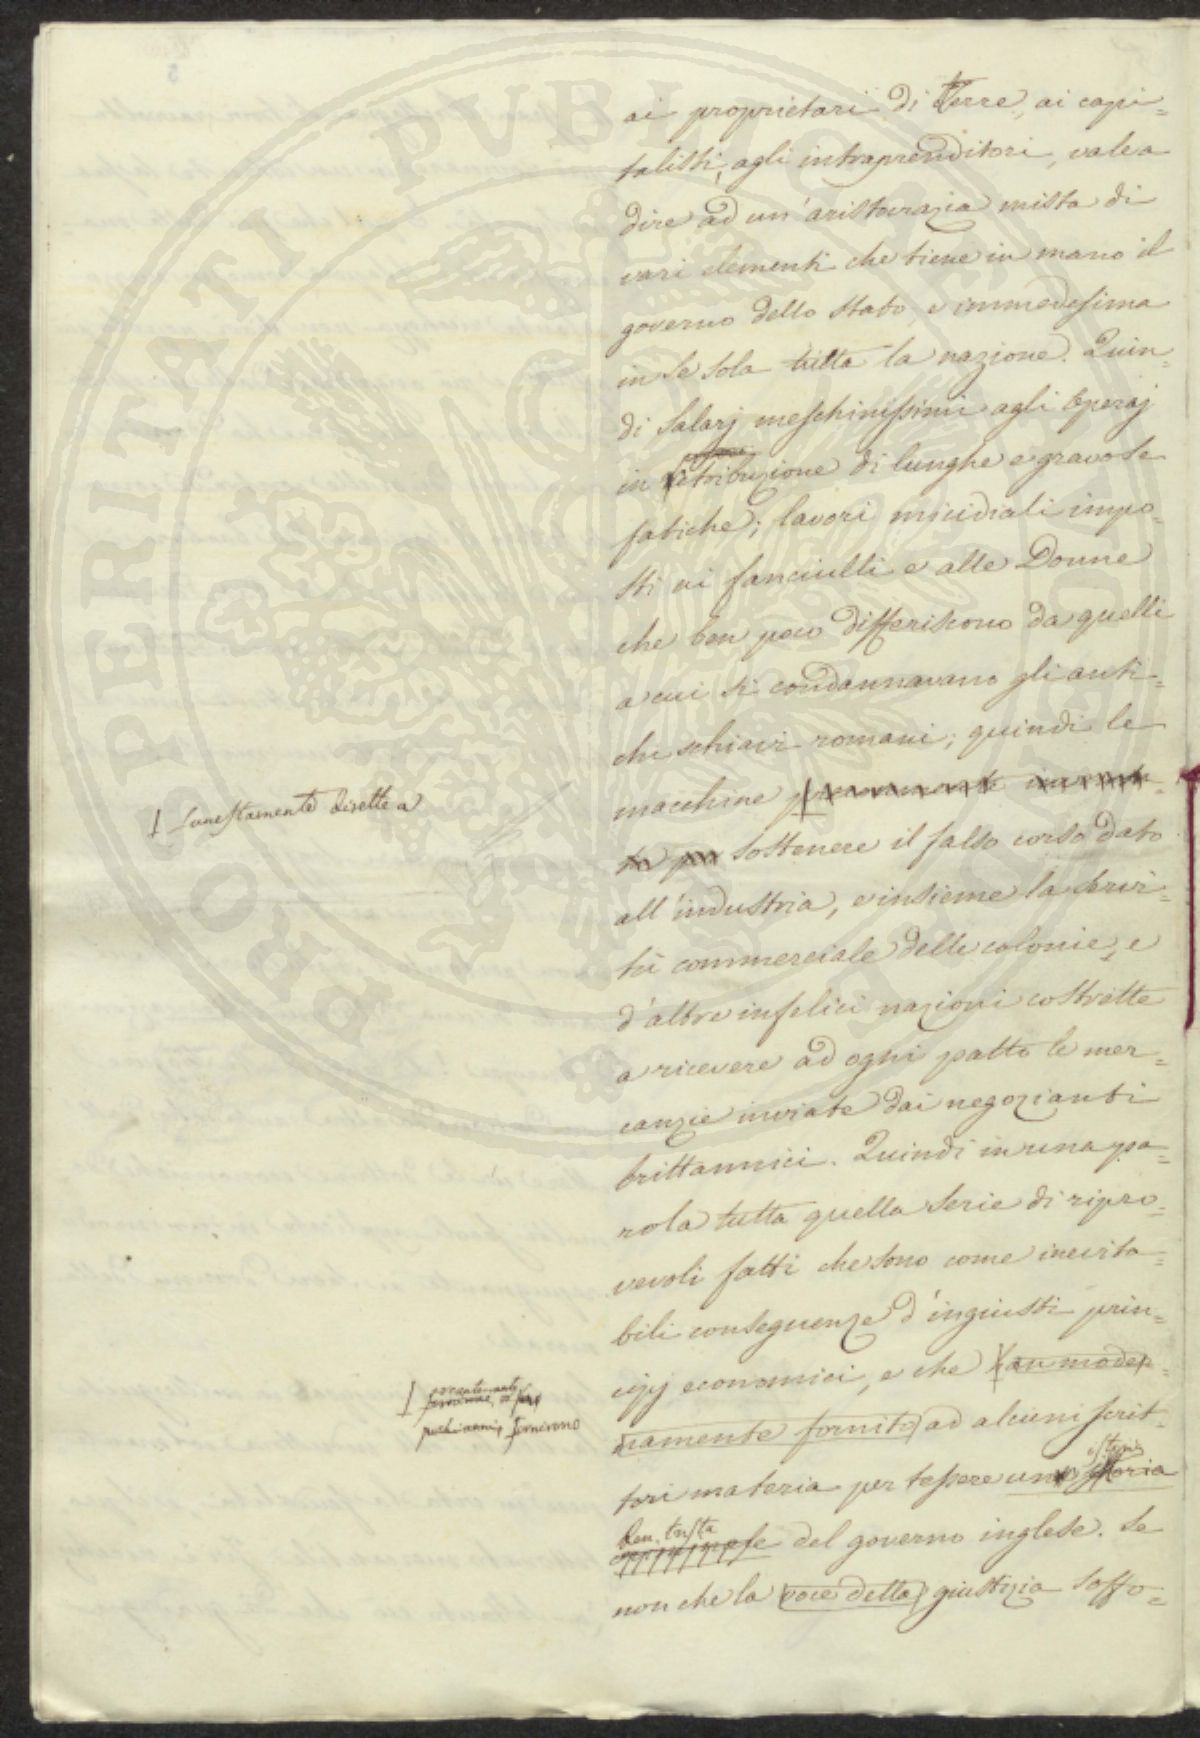 ai proprietari di terre, ai capi=
talisti, agli intraprenditori, vale a
dire ad un'aristocrazia mista di
vari elementi che tiene in mano il
governo dello stato, e immedesima
in se sola tutta la nazione. Quin=
di salarj meschinissimi agli operaj
in retribuzione di lunghe e gravose
fatiche; lavori micidiali impo=
sti ai fanciulli e alle Donne
che ben poco differiscono da quelli
a cui si condannavano gli anti=
chi schiavi romani; quindi le
macchine
funestamente dirette a
sostenere il falso corso dato
all'industria, e insieme la servi=
tù commerciale delle colonie, e
d'altre infelici nazioni costrette
a ricevere ad ogni patto le mer=
canzie inviate dai negozianti
brittannici. Quindi in una pa=
rola tutta quella serie di ripro=
vevoli fatti che sono come inevita=
bili conseguenze d'ingiusti prin=
cipj economici, e che han moder=
namente fornito ad alcuni scrit=
pochi anni, fornirono
tori materia per tessere una storia
ben trista del governo inglese. Se
non che la voce della giustizia soffo=
PROSPERITATI PVBLICAE